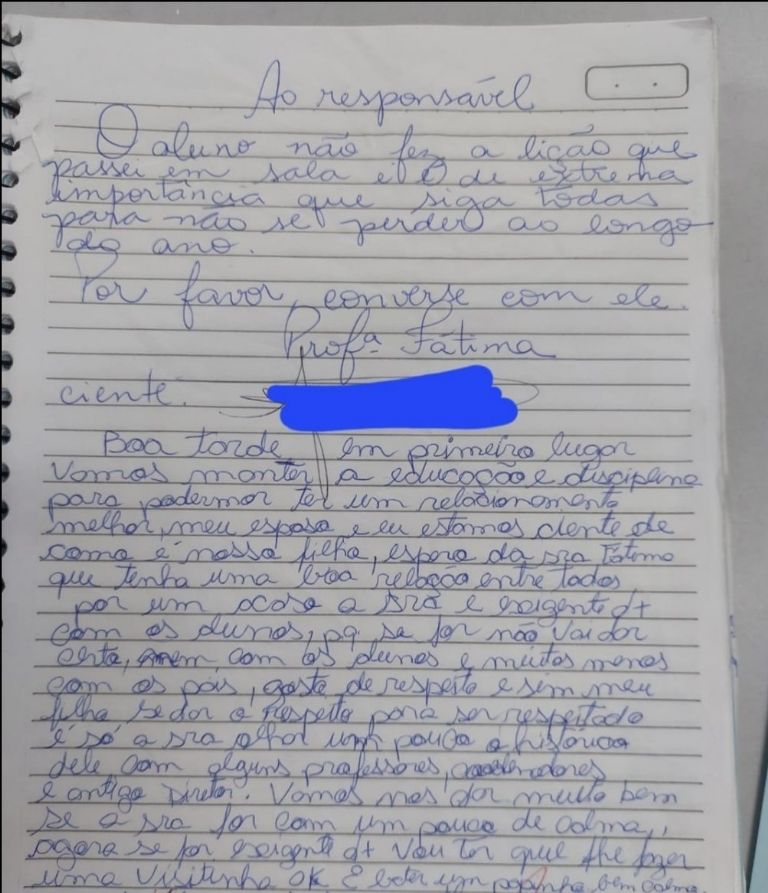 Ao responsável
O aluno não fez a lição que
passei em sala e é de extrema
importância que siga todas
para não se perder ao longo
do ano.
Por favor, converse com ele.
Profª Fátima
ciente.
Boa tarde, em primeiro lugar
Vamos manter a educação e disciplina
para podermor ter um relacionamento
melhor, meu esposo e eu estamos ciente de
como é nosso filho, espero da sra Fátima
que tenha uma boa relação entre todos
por um acaso a srª é exigente d+
com os alunos, pq se for não vai dar
certo, nem com os alunos e muitos menos
com os pais, gosto de respeito e sim meu
filho se dar o respeito para ser respeitado
é só a sra olhar um pouco o histórico
dele com alguns professores,
e antigo Diretor. Vamos nos dar muito bem
se a sra for com um pouco de calma,
agora se for exigente d+ vou ter que lhe fazer
uma visitinha OK E bater um papinho bem